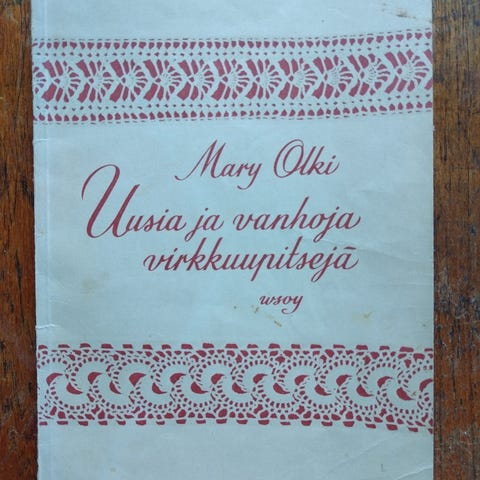 Mary Olki
Uusia ja vanhoja
virkkuupitsejä
wsoy